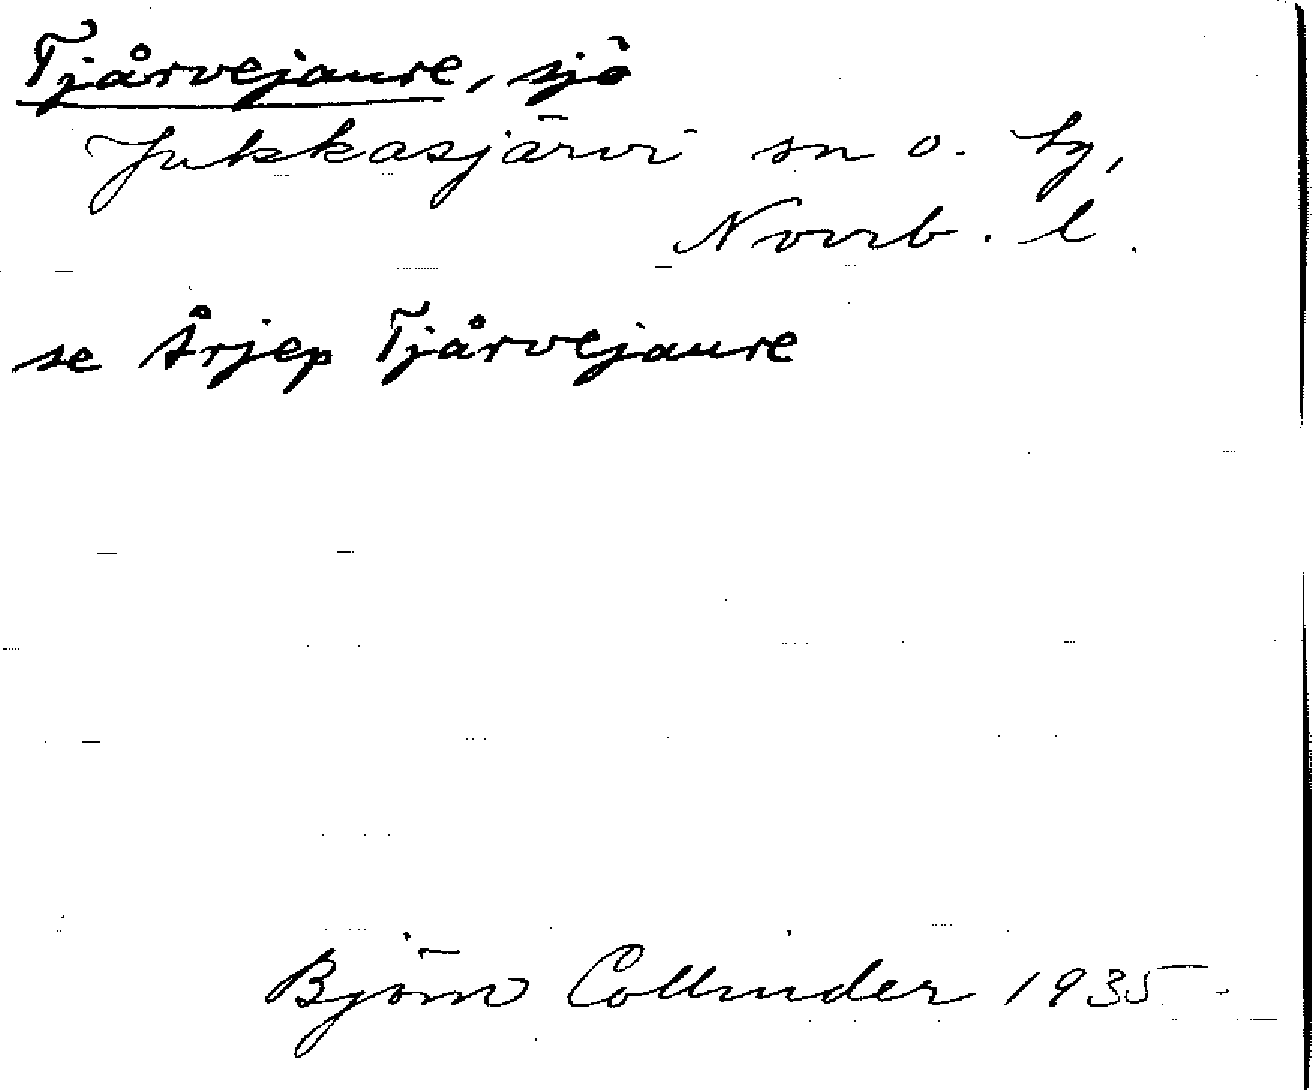 Tjårvejaure, sjö
Jukkasjärvi sn o. tg,
Norrb. l.
se Årjep Tjårvejaure
Björn Collinder 1935